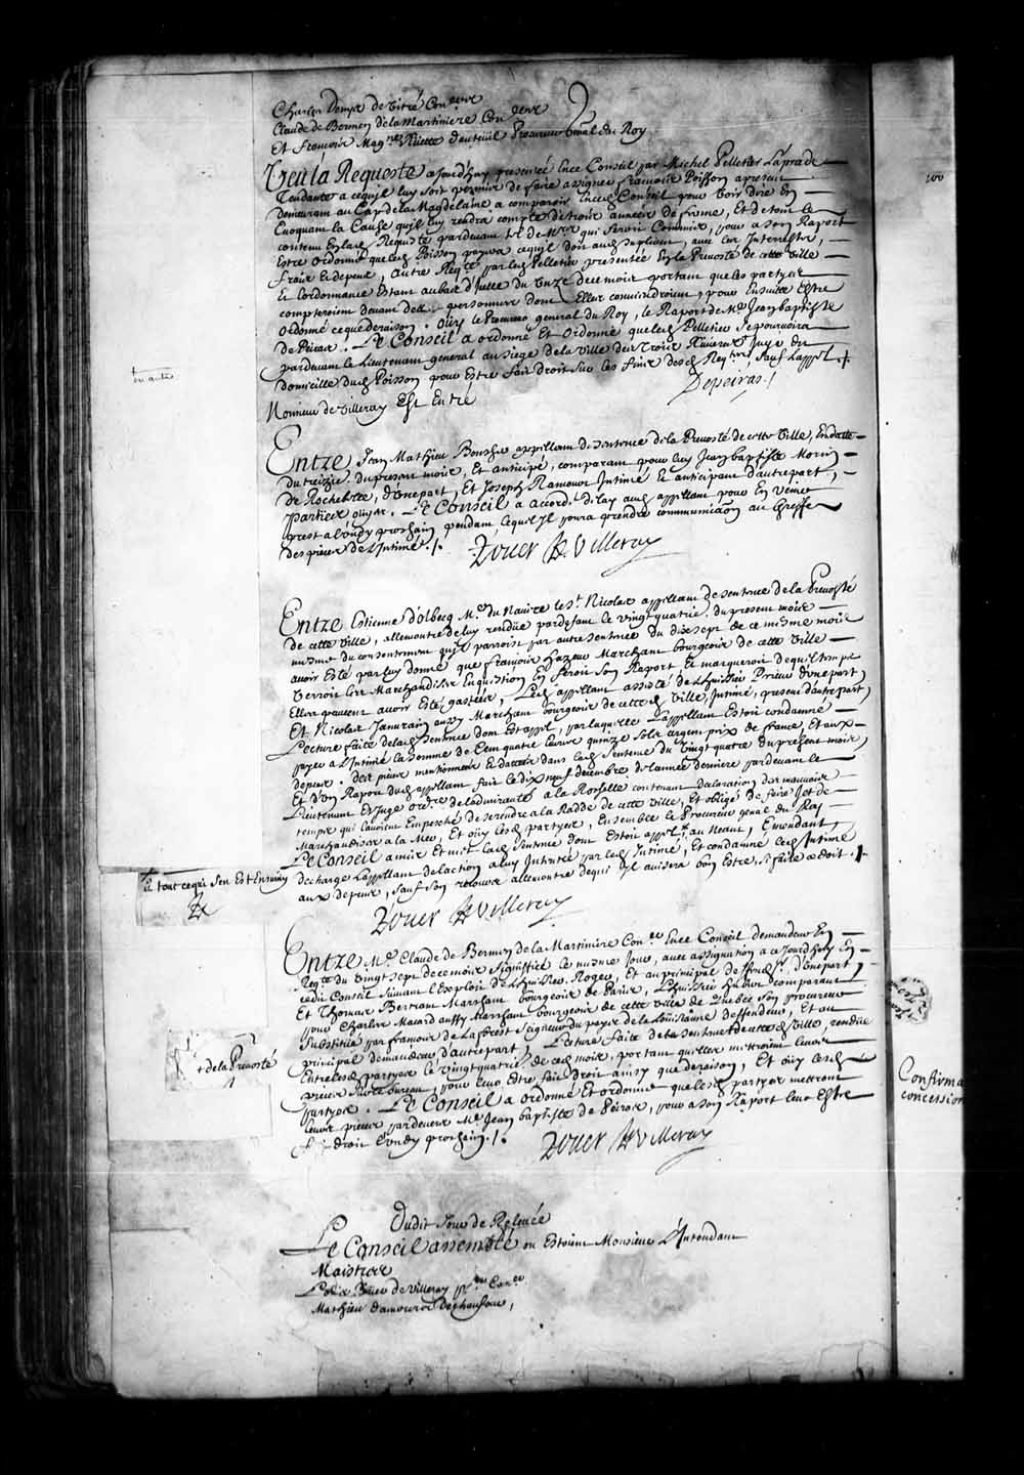 Charles Denys de Vitré Con.er
Claude de Bermen de la Martiniere Con.er
Et francois Mag.ne Ruette dauteuil Procureur G.nal du Roy
Veu la Requeste a Jourdhuy presentée En ce Conseil par Michel Pelletier Laprade
Tendante a cequil luy soit permis de faire assigner francois Poisson a present
demeurant au Cap de la Magdelaine a comparoir En ced. Conseil pour Voir dire En
Evoquant la Cause quil luy rendra compte de trois années de ferme, Et de tout le
contenu En lad. Requeste pardevant tel de M.rs qui seroit Commis, pour a son Raport
Estre ordonné que led. Poisson payera cequil doit aud. supliant, avec les Interests,
frais Et depens, Autre Req.te par led. Pelletier presentée En la Prevosté de cette Ville
Et Lordonnance Estant au bas d'Icelle du Unze de ce mois portant que les partyes
compteroient devant des personnes dont Elles conviendroient, pour Ensuitte Estre
Ordonné ceque de raison. Ouy le Procureur general du Roy, le Raport de M.e Jean baptiste
de Peiras. Le Conseil a ordonné Et Ordonne que led. Pelletier se pourvoira
pardevant le Lieutenant general au siege de la Ville des Trois Rivieres Juge du
domicille dud. Poisson pour Estre fait droit sur les fins desd. Req.tes, sauf Lappel +
Depeiras
Monsieur de Villeray Est Entré
Entre Jean Mathieu appellant de sentence de la Prevosté de cette Ville, En datte
du treizie. du present mois, Et anticipé, comparant pour luy Jean baptiste Morin
de Rochebelle, d'Une part, Et Joseph Intimé Et anticipant d'autre part,
parties ouyes. Le Conseil a accordé delay aud. appellant pour En Venir
prest a lundy prochain pendant lequel Il pourra prendre communication au Greffe
des pieces de L'Intimé.
Rouer de Villeray
Entre Estienne d'olbecq M.e du Navire le St. Nicolas appellant de sentence de la Prevosté
de cette Ville, allencontre de luy rendüe par deffaut le vingt quatrie. du present mois
mesme du consentement quil paroist par autre sentence du dix sept de ce mesme mois
avoir Esté par luy donné que francois hazeur Marchand bourgeois de cette Ville
Verroit les Marchandises En question En feroit son Raport Et marqueroit de quel temps
Elles peuvent avoir Esté gastées, Led. appellant assisté de L'huissier Prieur d'une part
Et Nicolas Janurain aussy Marchand bourgeois de cetted. Ville, Intimé, present d'autre part,
Lecture faite de lad. sentence dont Est appel, par laquelle Lappellant Estoit condamné
payer a L'Intimé la somme de Cent quatre livres quinze sols argent prix de france, Et aux
depens. Des pieces mentionnées Et dattées dans lad. sentence du Vingt quatre du present mois,
Et d'Un Raport dud. appellant fait le dix neuf decembre de l'année derniere pardevant le
Lieutenant Et Juge ord.re de ladmirauté a la Rochelle contenant declaration des mauvais
temps qui l'auroient Empesché de se rendre a la Radde de cette Ville, Et obligé de faire Jet de
Marchandises a la Mer, Et ouy lesd. partyes, Ensemble le Procureur general du Roy
Le Conseil a mis Et met lad. sentence dont Estoit appel + au neant, Emendant,
decharge Lappellant de laction a luy Intentée par led. Intimé, Et condamne led. Intimé
aux depens, sauf son recours allencontre de qui Il avisera bon Estre, si faire se doit.
+ Et tout ce qui sen Est Ensuivy
Rouer de Villeray
Entre M.e Claude de Bermen de la Martiniere Con.er En ce Conseil demandeur En
Req.te du Vingt sept de ce mois signiffiée le mesme Jour, avec assignation a ce Jourdhuy En
cedit Conseil suivant l'Exploit de L'huissier Roger, Et au principal deffendeur, d'Une part,
Et Thomas Bertrand Marchand bourgeois de Paris, comparant
pour Charles Macard aussy Marchand bourgeois de cette Ville de Quebec son procureur
substitué par francois de Laforest Seigneur du payis de la Loüisianne deffendeur, Et au
principal demandeur d'autre part, Lecture faite de la sentence + de cetted. Ville, rendüe
Entre lesd. partyes le Vingt quatrie. de ced. mois, portant quelles mettroient leurs
pieces sur le bureau, pour leur Estre fait droit ainsy que de raison, Et ouy lesd.
partyes. Le Conseil a ordonné Et ordonne que lesd. partyes mettront
leurs pieces pardevers M.e Jean baptiste de Peiras, pour a son Raport leur Estre
fait droit Lundy prochain.
+ de la Prevosté
Rouer de Villeray
Dudit Jour de Relevée
Le Conseil assemblé ou Estoient Monsieur L'Intendant
Maistres
Loüis Rouer de Villeray p.er Con.er
Mathieu damours Deschaufour,
Confirma
concession